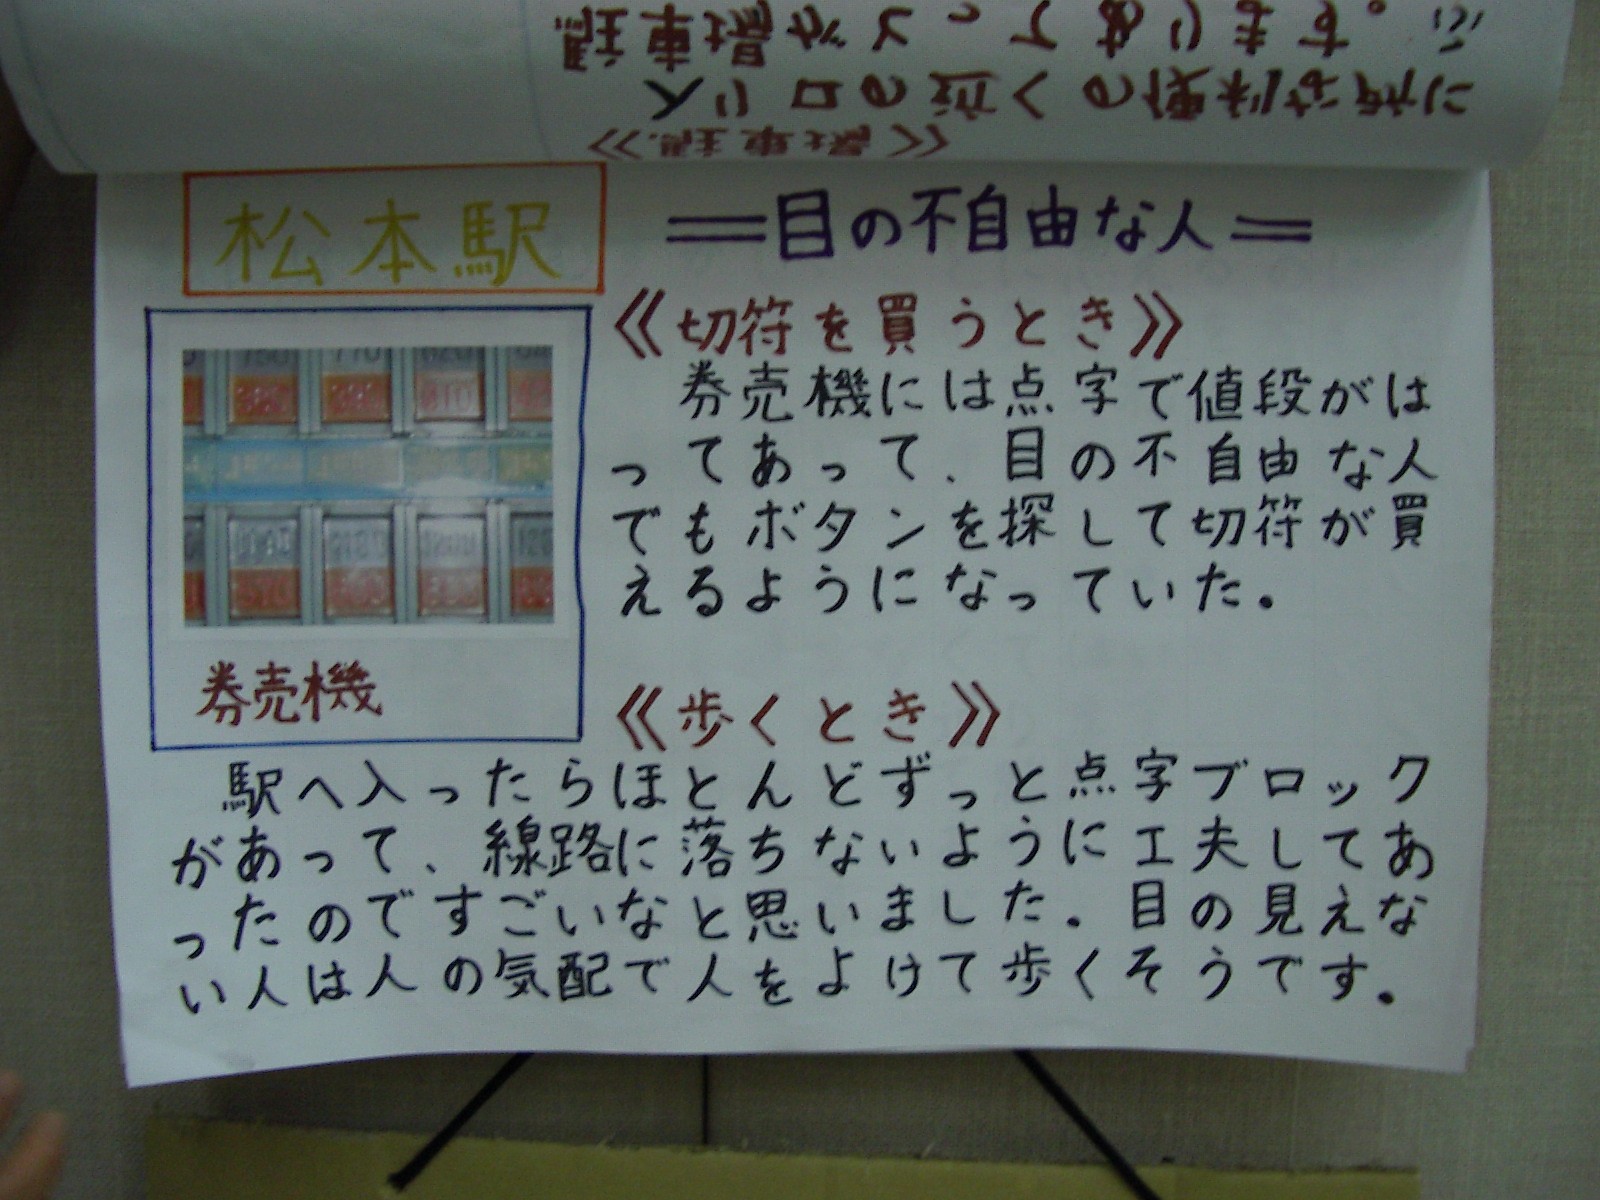 駐車場がとってあります。
入り口の近くの便利な所に
《駐車場》
松本駅
目の不自由な人
《切符を買うとき》
券売機には点字で値段がは
ってあって、目の不自由な人
でもボタンを探して切符が買
えるようになっていた。
券売機
《歩くとき》
駅へ入ったらほとんどずっと点字ブロック
があって、線路に落ちないように工夫してあ
ったのですごいなと思いました。目の見えな
い人は人の気配で人をよけて歩くそうです。